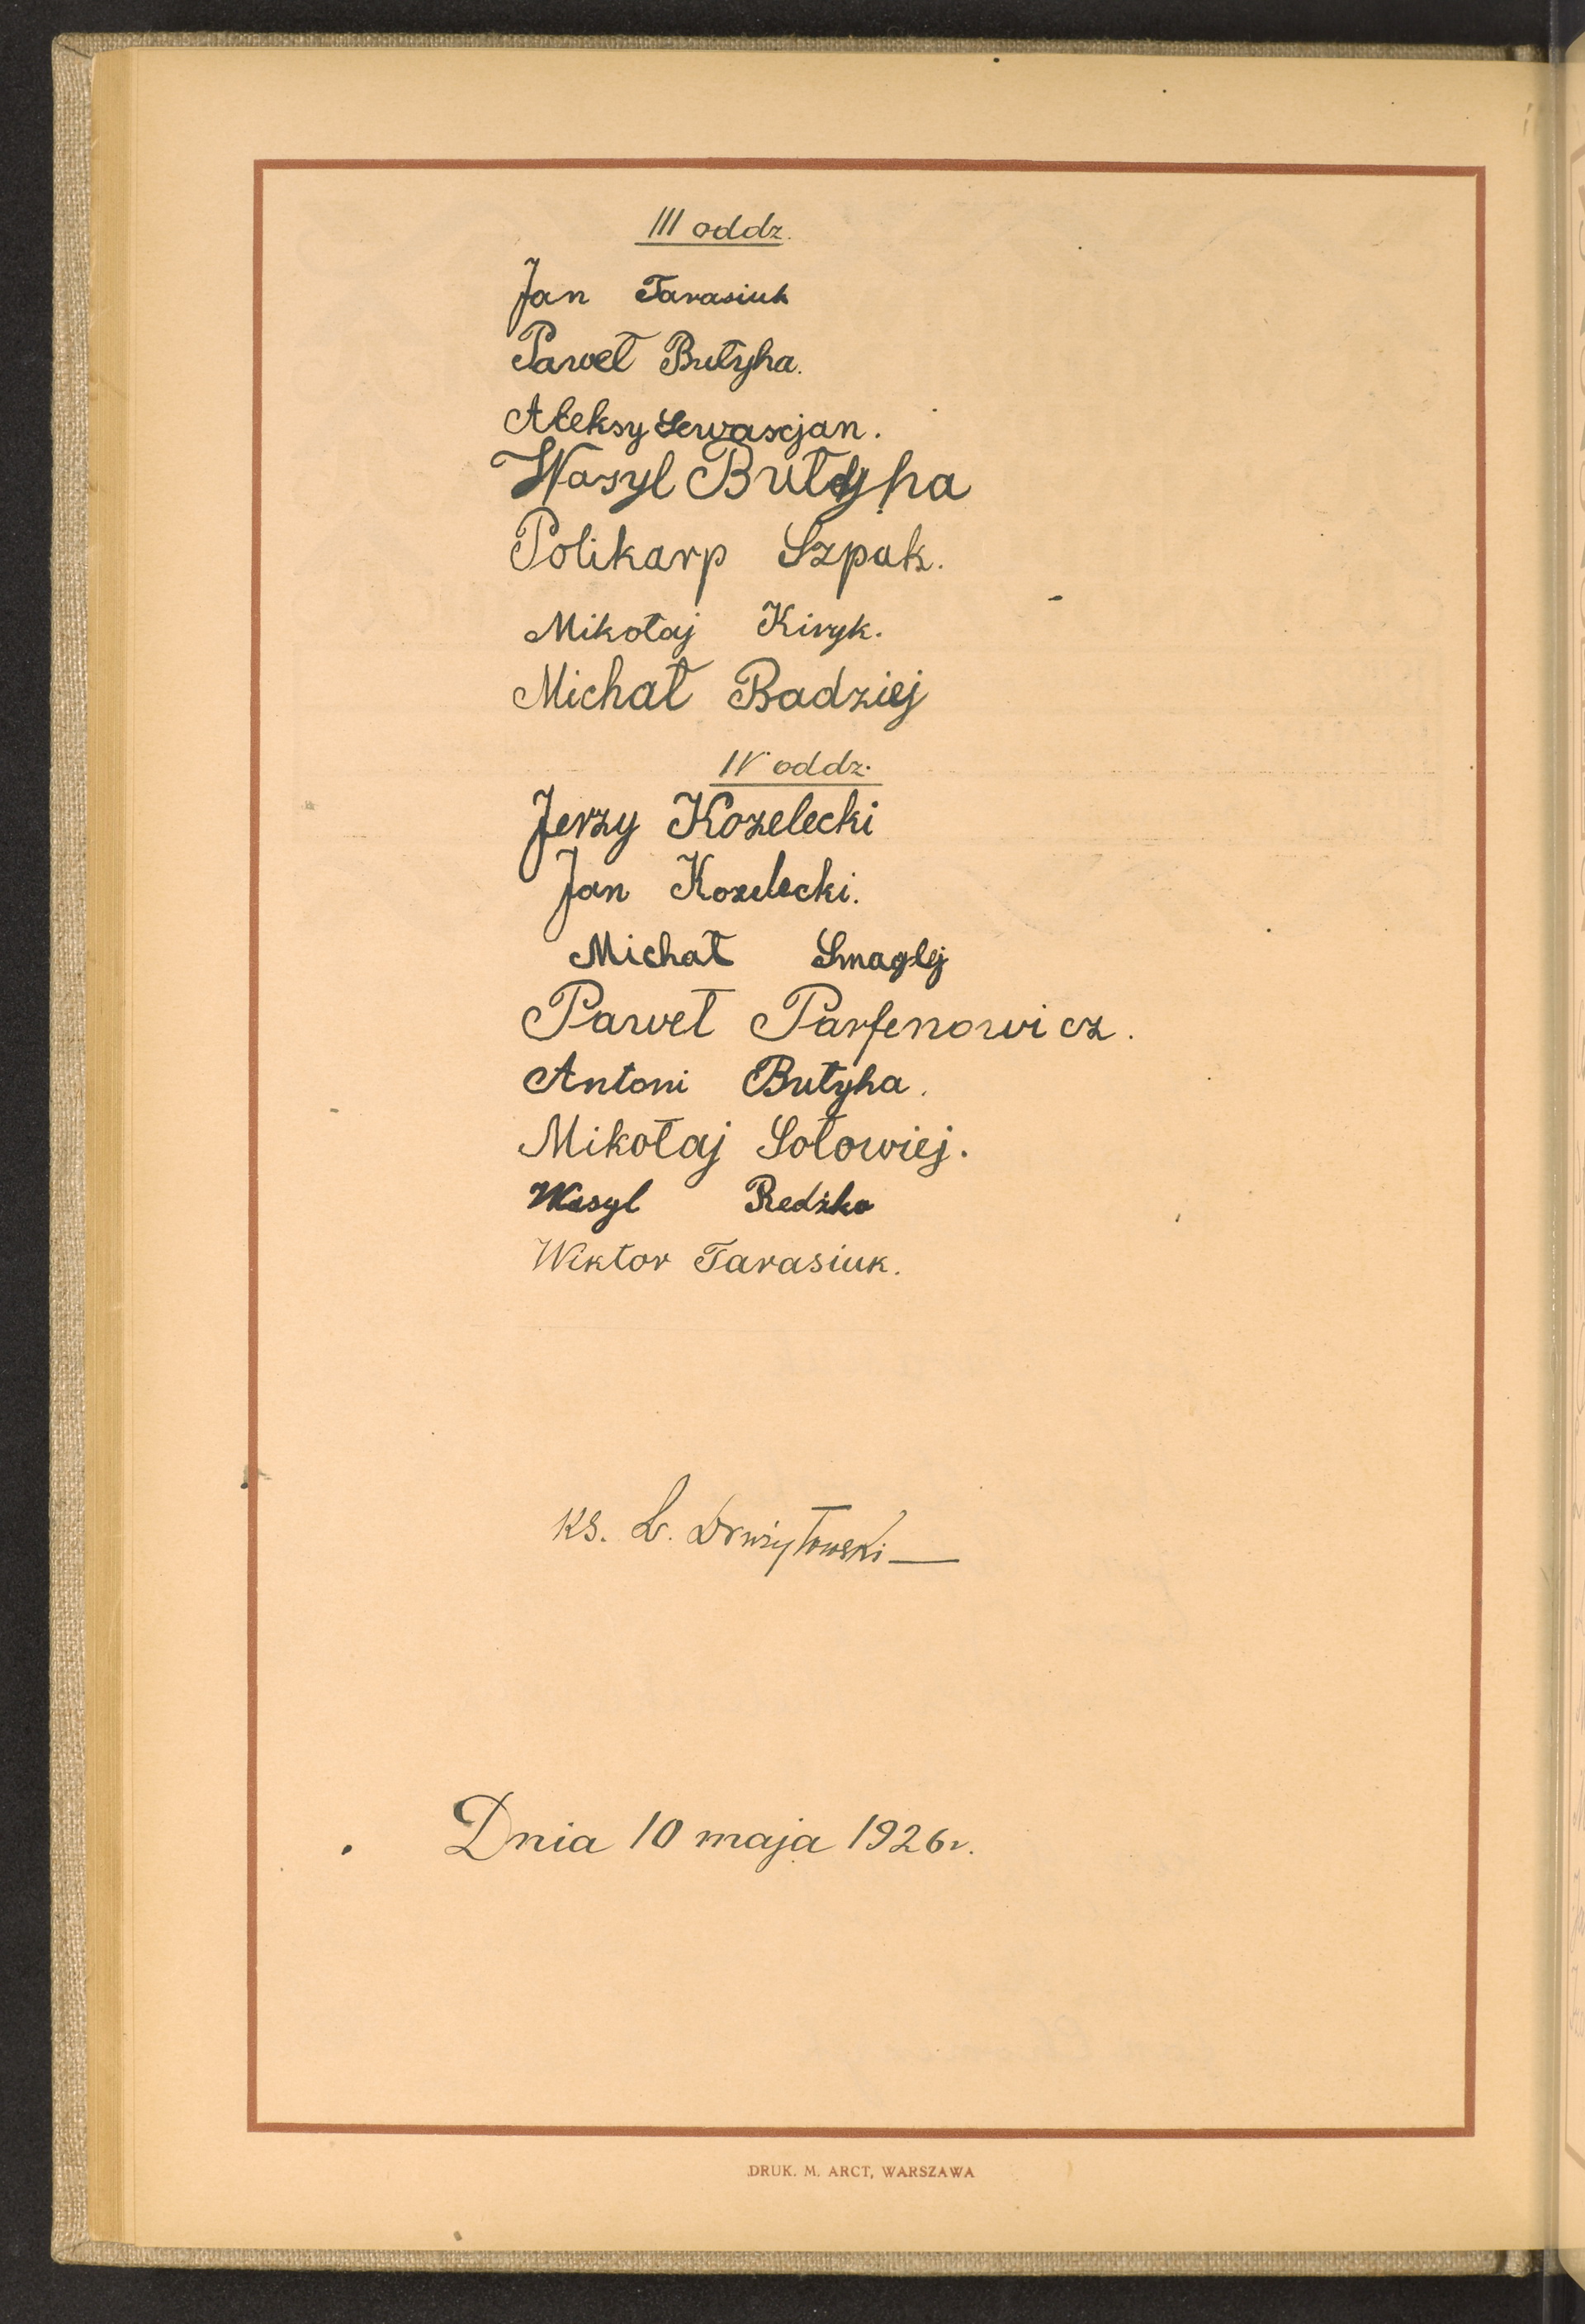 III oddz.
Jan Tarasiuk
Paweł Butyha.
Aleksy Sewascjan.
Wasyl Butyha
Polikarp Szpak.
Mikołaj Kiryk.
Michał Badziej
IV oddz.
Jerzy Kozelecki
Jan Kozelecki.
Michał Smaglij
Paweł Parfenowicz.
Antoni Butyha.
Mikołaj Sołowiej.
Wasyl Redźko
Wiktor Tarasiuk.
Ks. L.
Dnia 10 maja 1926r.
DRUK. M. ARCT, WARSZAWA